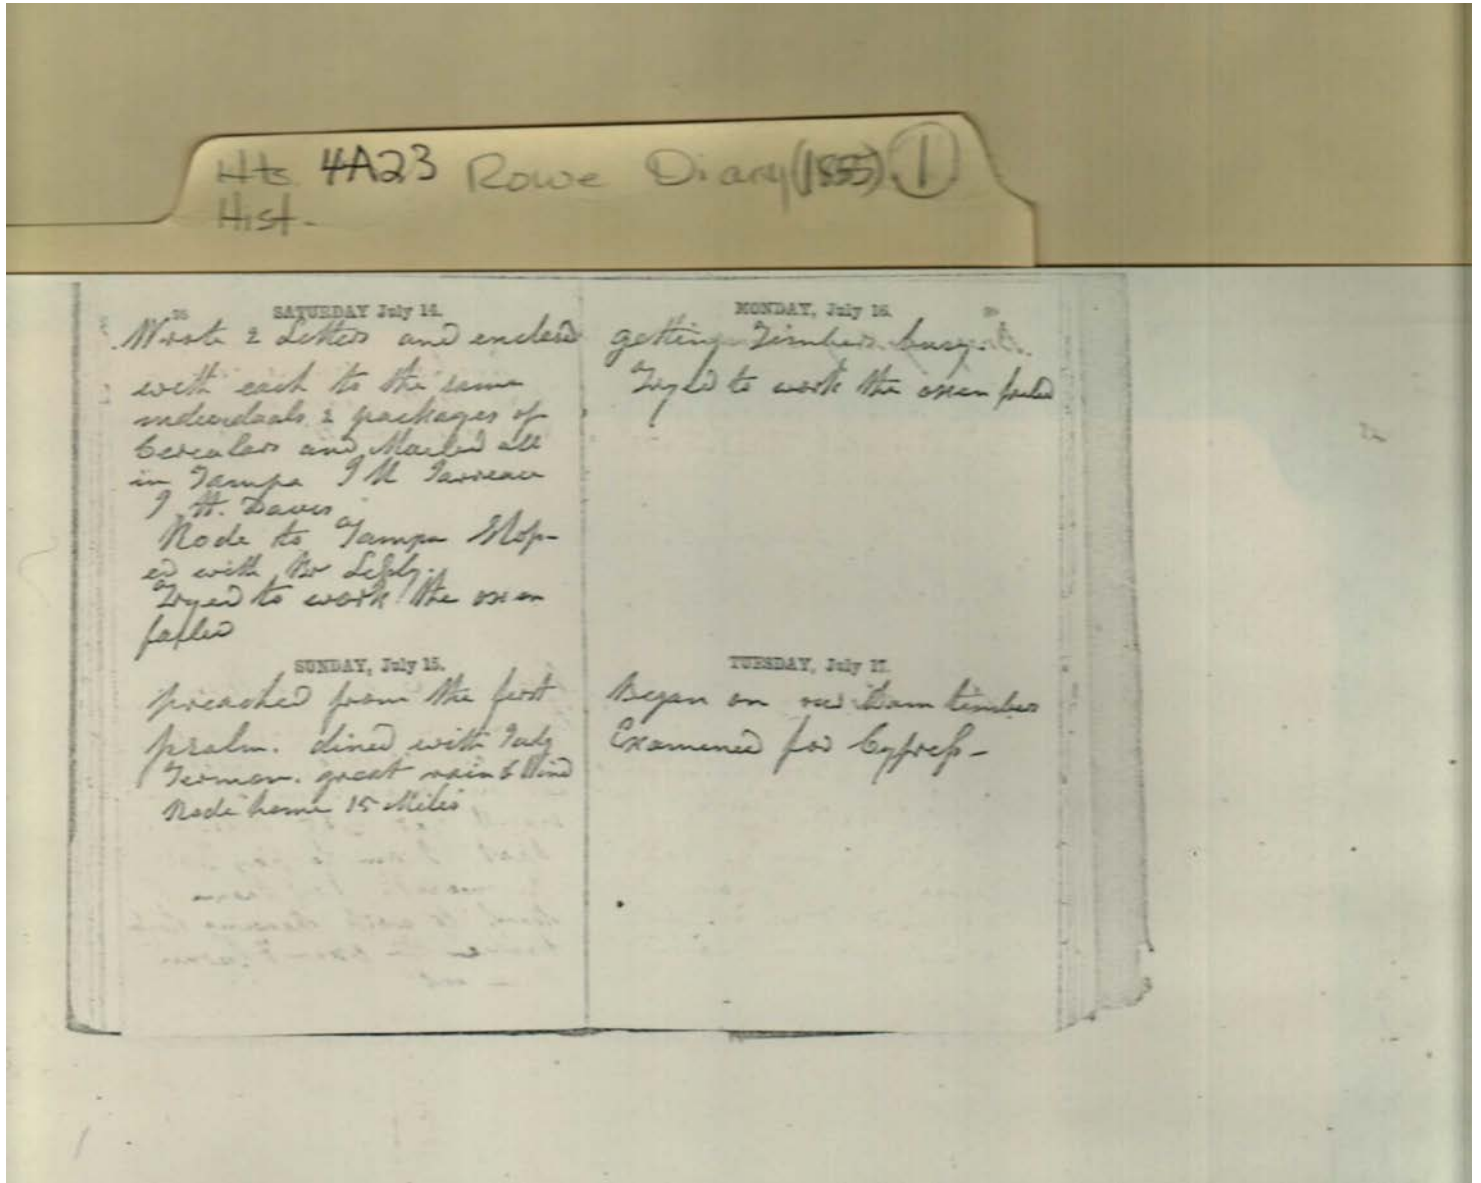 Hts 4A23 Rowe Diary (1855) 1
Hist.
SATURDAY July 14.
Wrote 2 Letters and enclosed
with each to the same
individuals 2 packages of
Cerculars and Mailed all
in Tampa
Davis
Rode to Tampa Stop-
ed with Br
Tryed to work the oxen
failed
SUNDAY, July 15.
preached from the first
psalm. dined with Judg
great rain & Wind
Rode home 15 Miles
MONDAY, July 16.
getting Timbers
Tryed to work the oxen failed
TUESDAY, July 17.
Began on our Dam timber
Examened for Cypress-